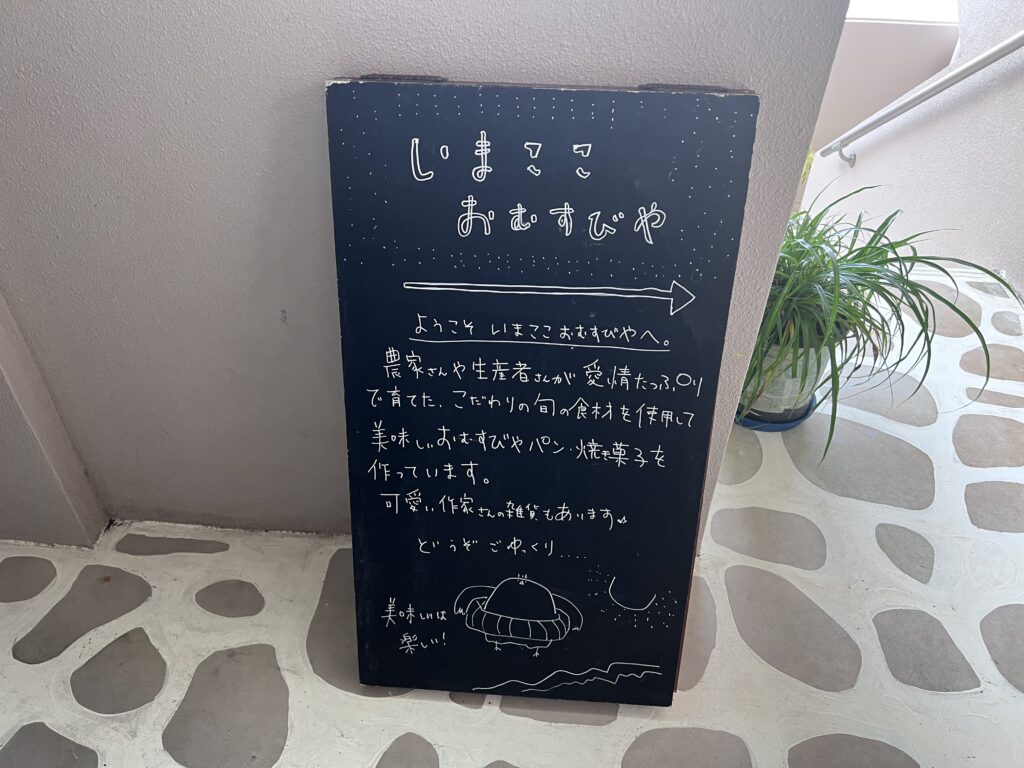 いまここ
おむすびや
ようこそ いまここおむすびやへ。
農家さんや生産者さんが 愛情たっぷり
で育てた、こだわりの旬の食材を使用して
美味しいおむすびやパン・焼き菓子を
作っています。
可愛い作家さんの雑貨もあります♪
どうぞごゆっくり.....
美味しいは
楽しい!